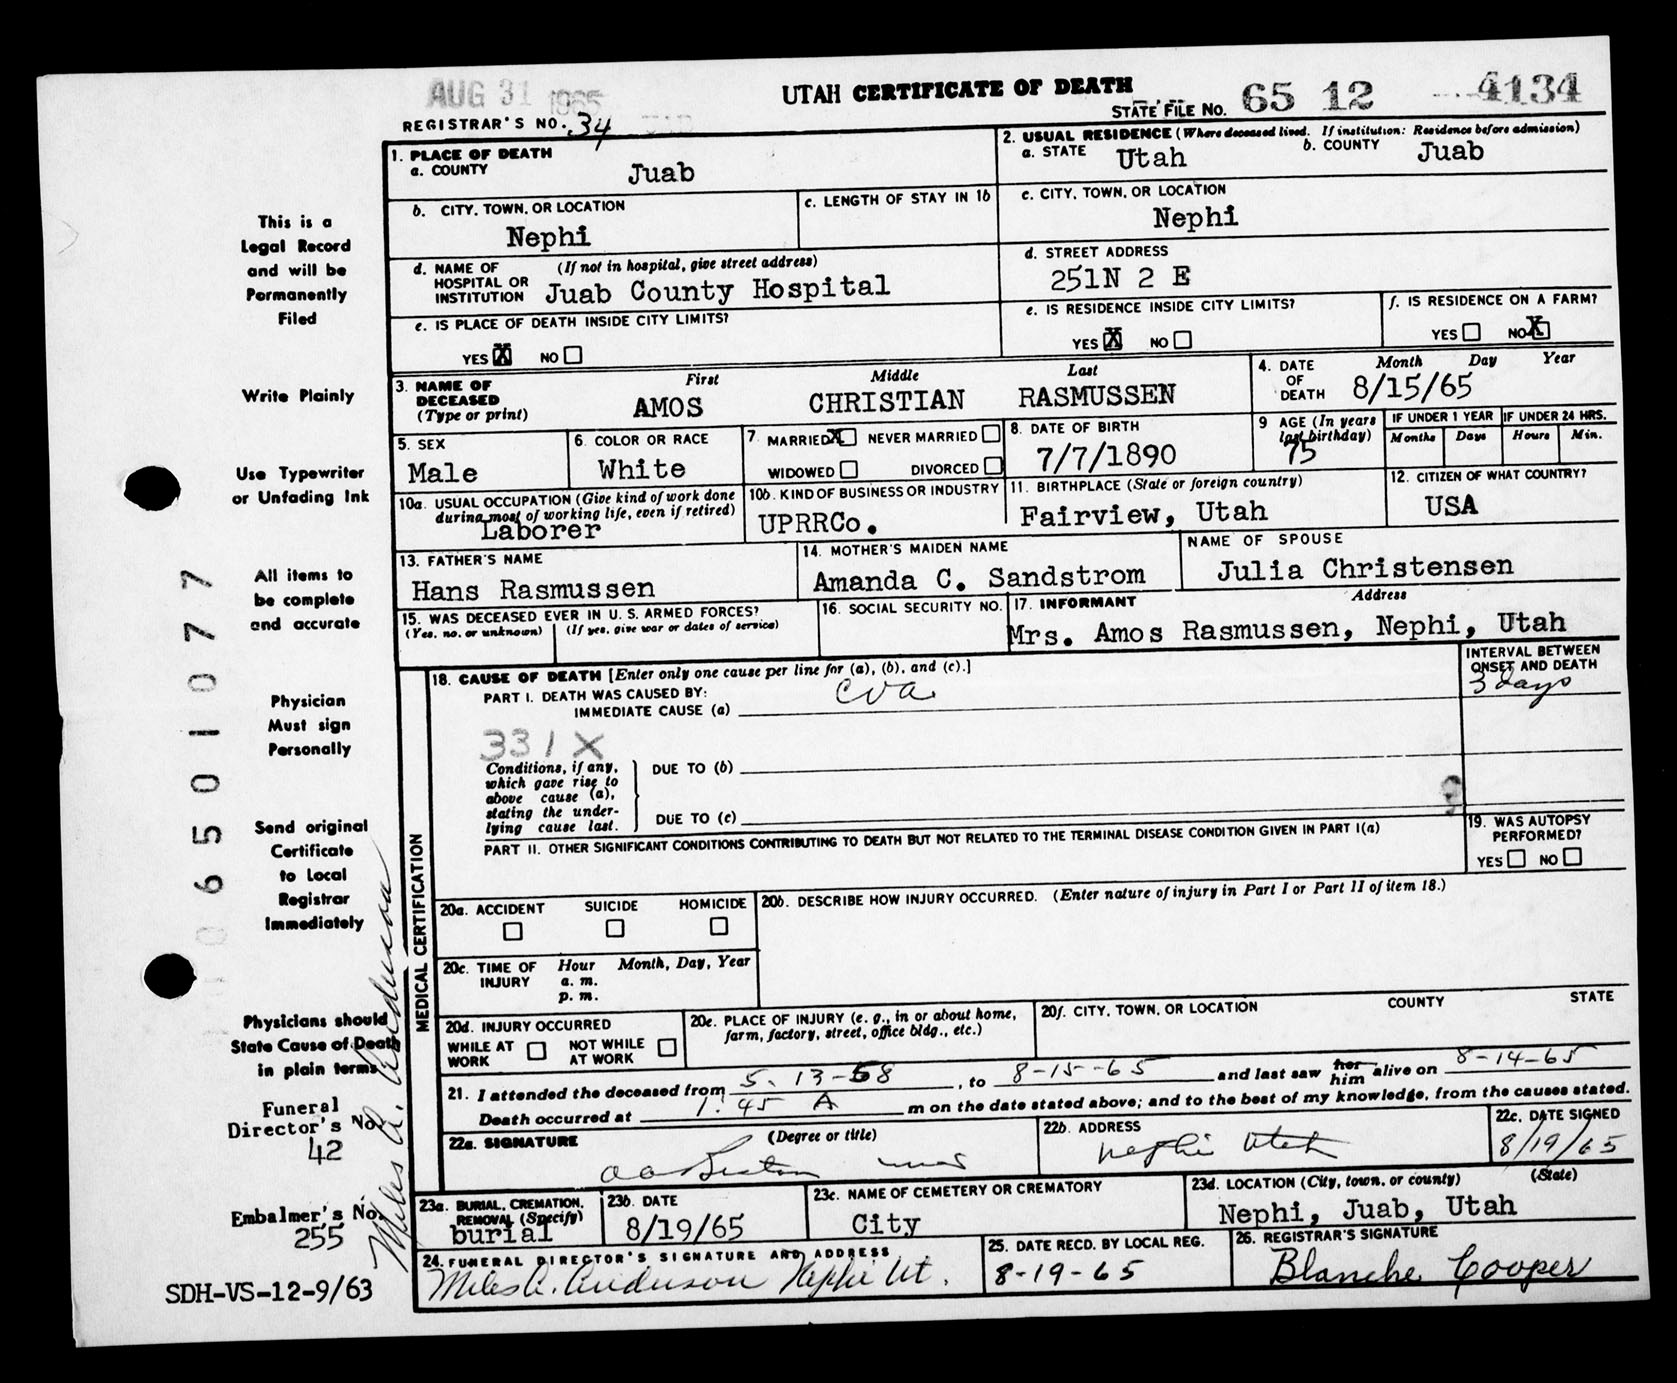 AUG 31 1965
UTAH CERTIFICATE OF DEATH
STATE FILE NO. 65 12 4134
REGISTRAR'S NO. 34
1. PLACE OF DEATH
a. COUNTY Juab
2. USUAL RESIDENCE (Where deceased lived. If institution: Residence before admission)
a. STATE Utah b. COUNTY Juab
b. CITY, TOWN, OR LOCATION
Nephi
c. LENGTH OF STAY IN 1b
c. CITY, TOWN, OR LOCATION
Nephi
d. NAME OF HOSPITAL OR INSTITUTION (If not in hospital, give street address)
Juab County Hospital
d. STREET ADDRESS
251N 2 E
e. IS PLACE OF DEATH INSIDE CITY LIMITS?
YES X NO
e. IS RESIDENCE INSIDE CITY LIMITS?
YES X NO
f. IS RESIDENCE ON A FARM?
YES NO X
3. NAME OF DECEASED (Type or print)
First Middle Last
AMOS CHRISTIAN RASMUSSEN
4. DATE OF DEATH Month Day Year
8/15/65
5. SEX
Male
6. COLOR OR RACE
White
7. MARRIED X NEVER MARRIED
WIDOWED DIVORCED
8. DATE OF BIRTH
7/7/1890
9 AGE (In years last birthday)
75
IF UNDER 1 YEAR
Months Days
IF UNDER 24 HRS.
Hours Min.
10a. USUAL OCCUPATION (Give kind of work done during most of working life, even if retired)
Laborer
10b. KIND OF BUSINESS OR INDUSTRY
UPRRCo.
11. BIRTHPLACE (State or foreign country)
Fairview, Utah
12. CITIZEN OF WHAT COUNTRY?
USA
13. FATHER'S NAME
Hans Rasmussen
14. MOTHER'S MAIDEN NAME
Amanda C. Sandstrom
NAME OF SPOUSE
Julia Christensen
15. WAS DECEASED EVER IN U. S. ARMED FORCES?
(Yes, no, or unknown) (If yes, give war or dates of service)
16. SOCIAL SECURITY NO.
17. INFORMANT Address
Mrs. Amos Rasmussen, Nephi, Utah
MEDICAL CERTIFICATION
18. CAUSE OF DEATH [Enter only one cause per line for (a), (b), and (c).]
PART I. DEATH WAS CAUSED BY:
IMMEDIATE CAUSE (a) CVA
INTERVAL BETWEEN ONSET AND DEATH
3 days
331X
Conditions, if any, which gave rise to above cause (a), stating the underlying cause last.
DUE TO (b)
DUE TO (c)
PART II. OTHER SIGNIFICANT CONDITIONS CONTRIBUTING TO DEATH BUT NOT RELATED TO THE TERMINAL DISEASE CONDITION GIVEN IN PART I(a)
19. WAS AUTOPSY PERFORMED?
YES NO
20a. ACCIDENT SUICIDE HOMICIDE
20b. DESCRIBE HOW INJURY OCCURRED. (Enter nature of injury in Part I or Part II of item 18.)
20c. TIME OF INJURY Hour Month, Day, Year
a. m.
p. m.
20d. INJURY OCCURRED
WHILE AT WORK NOT WHILE AT WORK
20e. PLACE OF INJURY (e. g., in or about home, farm, factory, street, office bldg., etc.)
20f. CITY, TOWN, OR LOCATION COUNTY STATE
21. I attended the deceased from 5-13-58, to 8-15-65 and last saw her him alive on 8-14-65
Death occurred at 1:45 A m on the date stated above; and to the best of my knowledge, from the causes stated.
22a. SIGNATURE (Degree or title)
22b. ADDRESS
Nephi Utah
22c. DATE SIGNED
8/19/65
23a. BURIAL, CREMATION, REMOVAL (Specify)
burial
23b. DATE
8/19/65
23c. NAME OF CEMETERY OR CREMATORY
City
23d. LOCATION (City, town, or county) (State)
Nephi, Juab, Utah
24. FUNERAL DIRECTOR'S SIGNATURE AND ADDRESS
Miles A. Anderson Nephi Ut.
25. DATE RECD. BY LOCAL REG.
8-19-65
26. REGISTRAR'S SIGNATURE
Blanche Cooper
This is a
Legal Record
and will be
Permanently
Filed
Write Plainly
Use Typewriter
or Unfading Ink
All items to
be complete
and accurate
Physician
Must sign
Personally
Send original
Certificate
to Local
Registrar
Immediately
Physicians should
State Cause of Death
in plain terms
Funeral
Director's No.
42
Embalmer's No.
255
SDH-VS-12-9/63
Miles A. Anderson
06501077